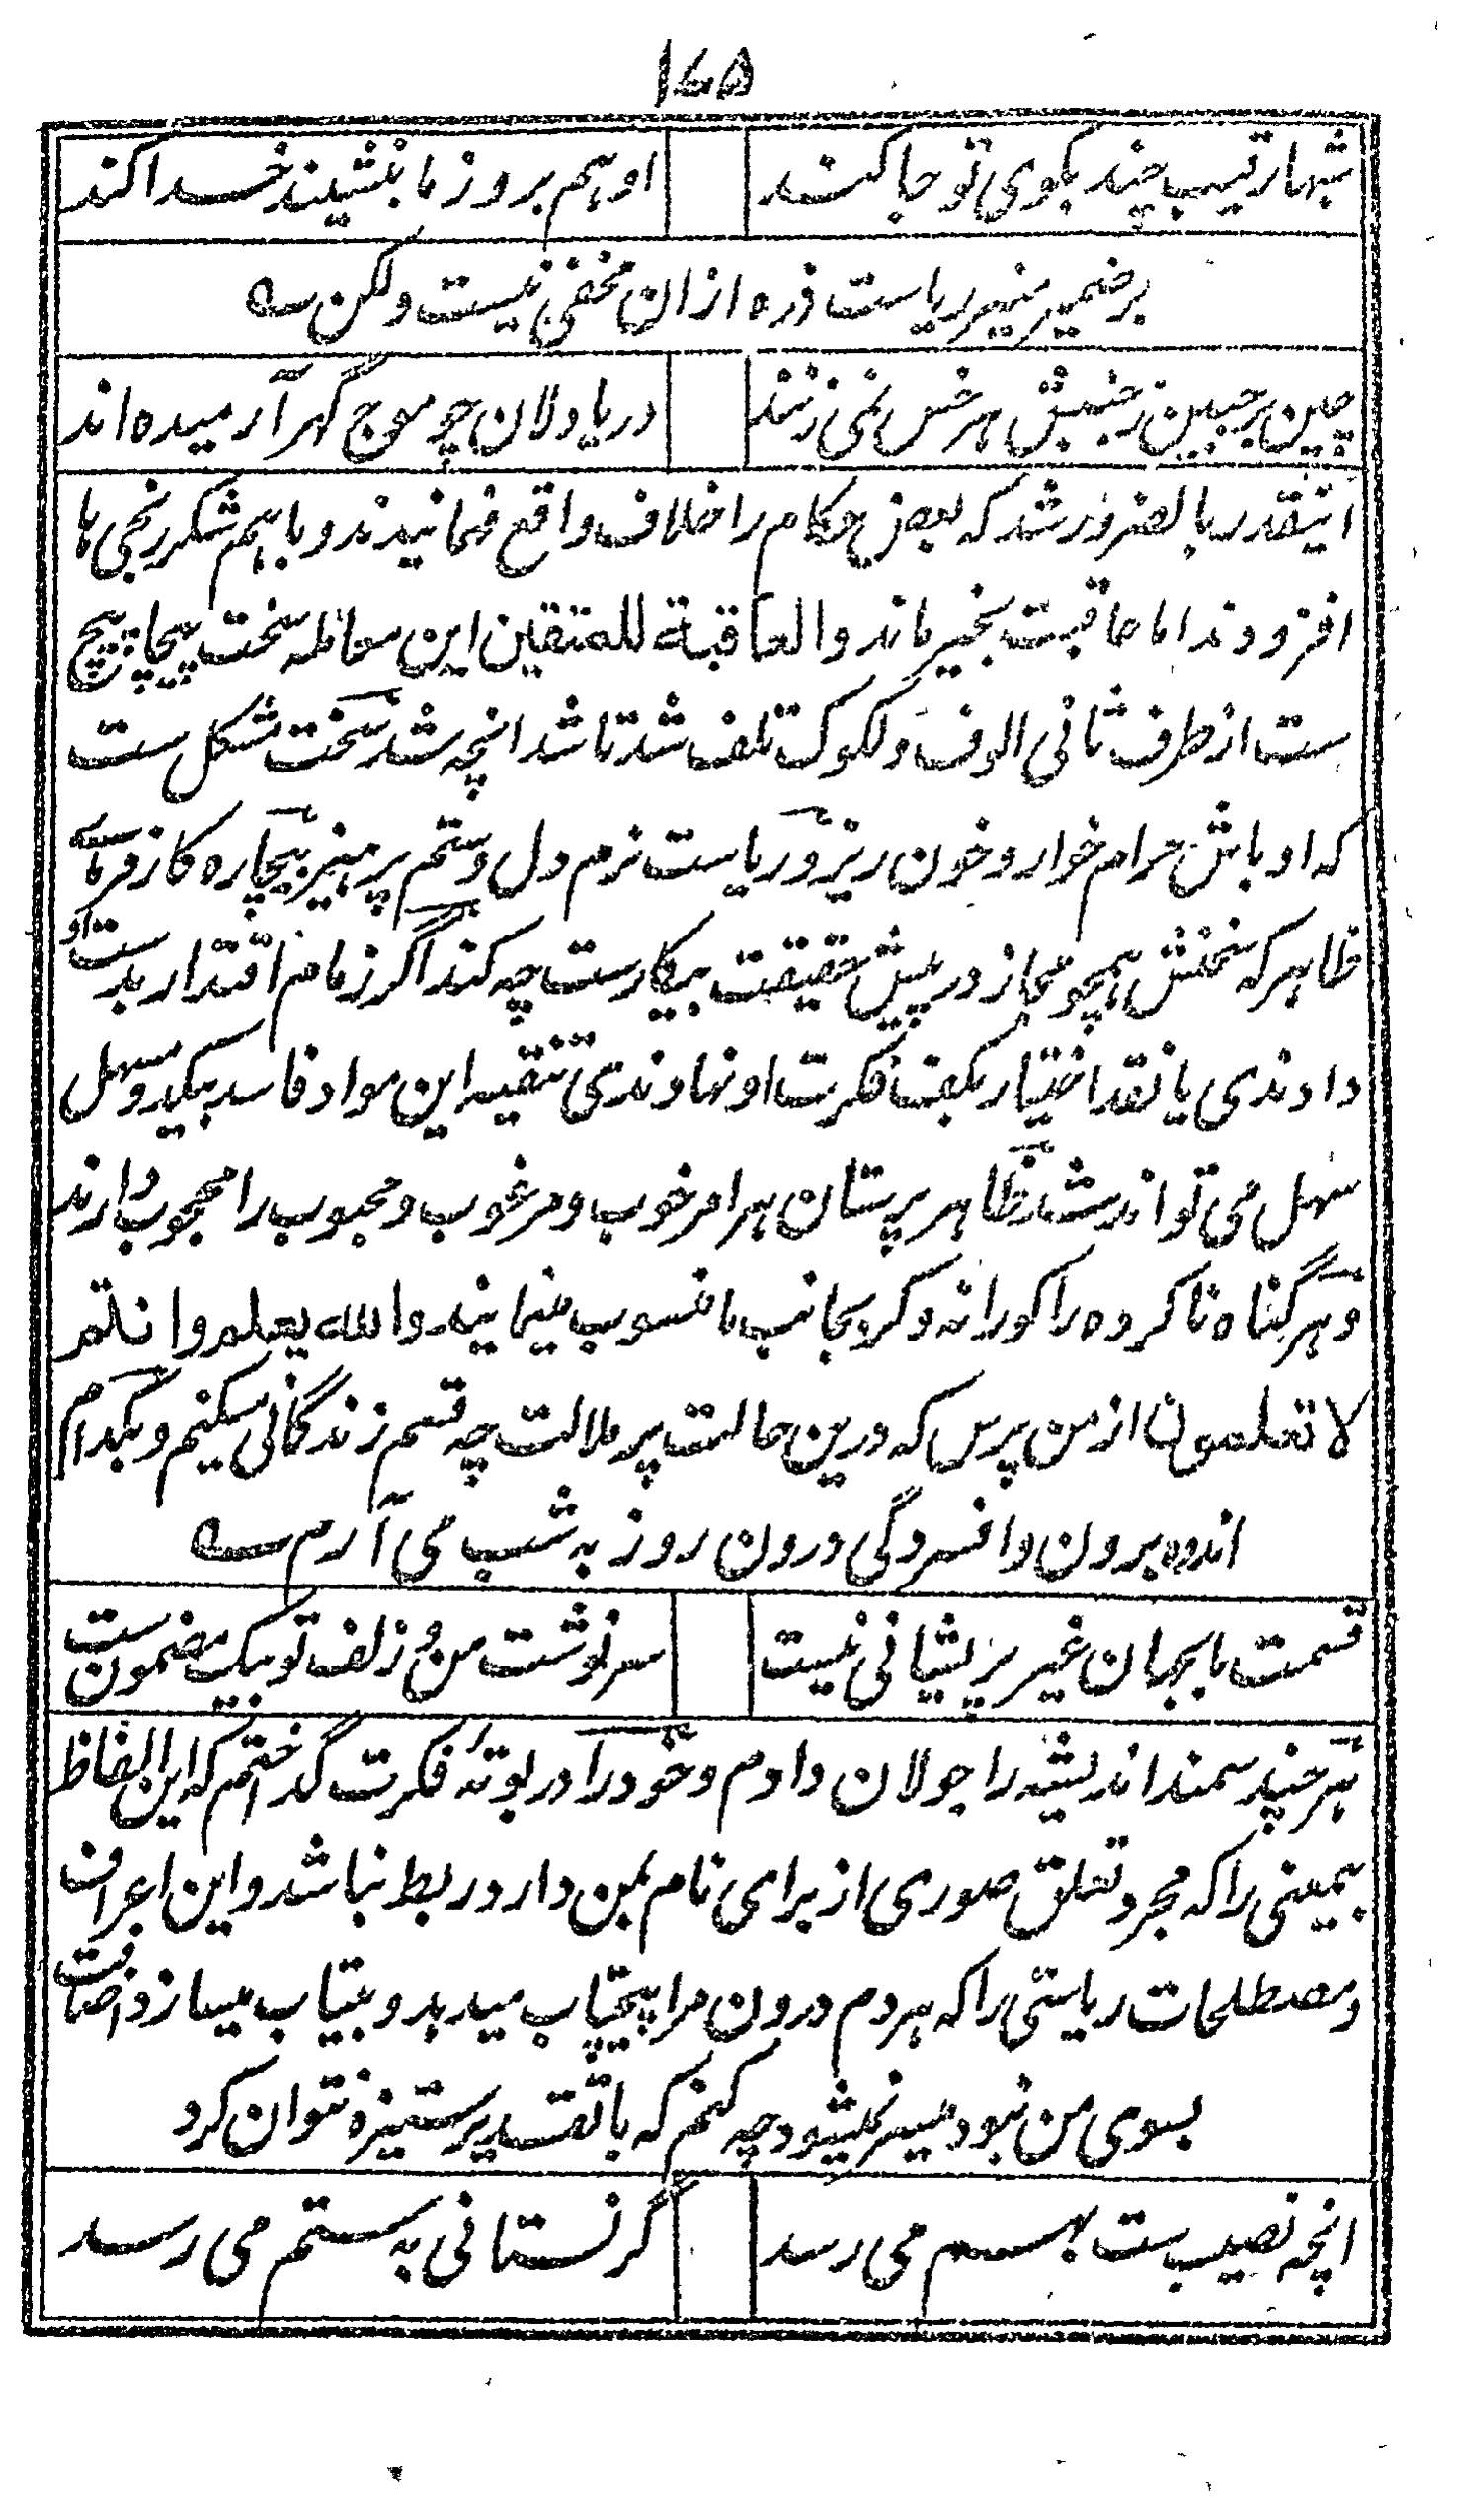 ۱۷۵
شبها رقیب چند بکوی تو جا کند او هم بروز ما بنشیند خدا کند
بر ضمیر منیر ریاست ذره ازان مخفی نیست ولکن ے
چین بر جبین ز جنبش هر خس نمی زنند دریا دلان چو موج گهر آرمیده اند
اینقدر بالضرور شد که بعض حکام را خلاف واقع فهمانیدند و باهم شکر رنجی ها
افزودند اما عاقبت بخیر ماند والعاقبة للمتقین این معامله سخت پیچاپیچ
ست از طرف ثانی الوف و لکوک تلف شد تا شد انچه شد سخت مشکل ست
که اوباش حرام خوار و خون ریز و ریاست نرم دل و ستم پرهیز بیچاره کارفرمای
ظاهر که سخنش همچو مجاز در پیش حقیقت بیکارست چه کند اگر زمام اقتدار بدست او
دادندی یا نقد اختیار بکف فکرت او نهادندی تنقیه این مواد فاسد بیکدو مسهل
سهل می تواند شد ظاهر پرستان هر امر خوب و مرغوب و محبوب را محجوب دارند
و هر گناه ناکرده را کورانه و کر بجانب ما منسوب مینمایند والله یعلم وانتم
لا تعلمون از من پرس که درین حالت پر ملالت چه قسم زندگانی میکنم و بکدام
اندوه برون و افسردگی درون روز به شب می آرم ے
قسمت ما بجهان غیر پریشانی نیست سرنوشت من و زلف تو بیک مضمون ست
هر چند سمند اندیشه را جولان دادم و خود را در بوتهٔ فکرت گداختم که این الفاظ
بمعینی را که مجرد تعلق صوری از برای نام بمن دارد ربط نباشد و این اعراف
و مصطلحات ریاستی را که هر دم درون مرا پیچتاب میدهد و بیتاب میسازد اضافت
بسوی من نبود میسر نمیشود چه کنم که با تقدیر ستیزه نتوان کرد
انچه نصیب ست بهم می رسد گر نستانی به ستم می رسد